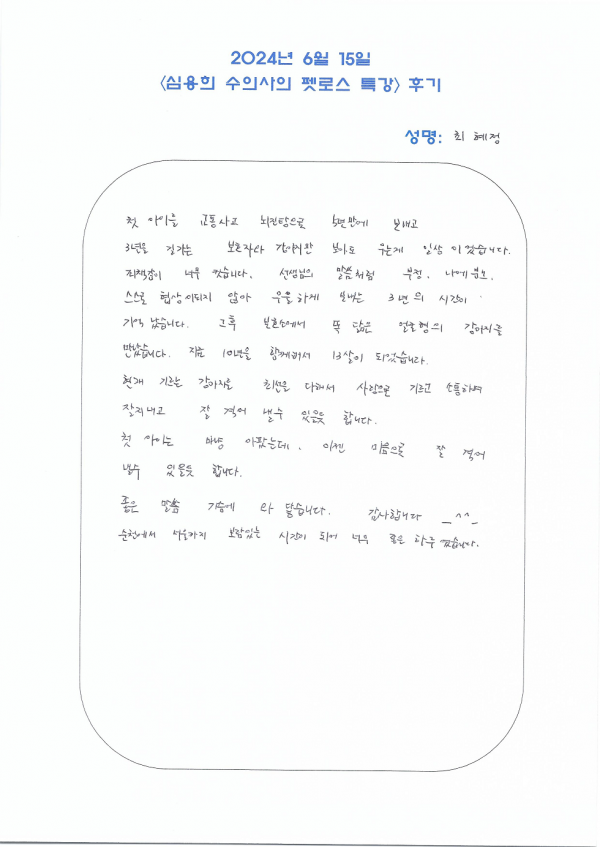 2024년 6월 15일
<심용희 수의사의 펫로스 특강> 후기
성명: 최 혜정
첫 아이를 교통사고 뇌진탕으로 5년만에 보내고
3년을 길가는 보호자와 강아지만 보아도 우는게 일상이었습니다.
죄책감이 너무 컸습니다. 선생님의 말씀처럼 부정, 분노,
스스로 협상이되지 않아 우울하게 보내는 3년의 시간이
기억 났습니다. 그후 보호소에서 똑 닮은 얼굴형의 강아지를
만났습니다. 지금 10년을 함께해서 13살이 되었습니다.
현재 기르는 강아지를 최선을 다해서 사랑으로 기르고 소통하며
잘지내고 잘 격어 낼수 있을듯 합니다.
첫 아이는 마냥 아팠는데, 이젠 믿음으로 잘 격어
낼수 있을듯 합니다.
좋은 말씀 가슴에 와 닿습니다. 감사합니다 _^^_
순천에서 서울까지 보람있는 시간이 되어 너무 좋은 하루 였습니다.